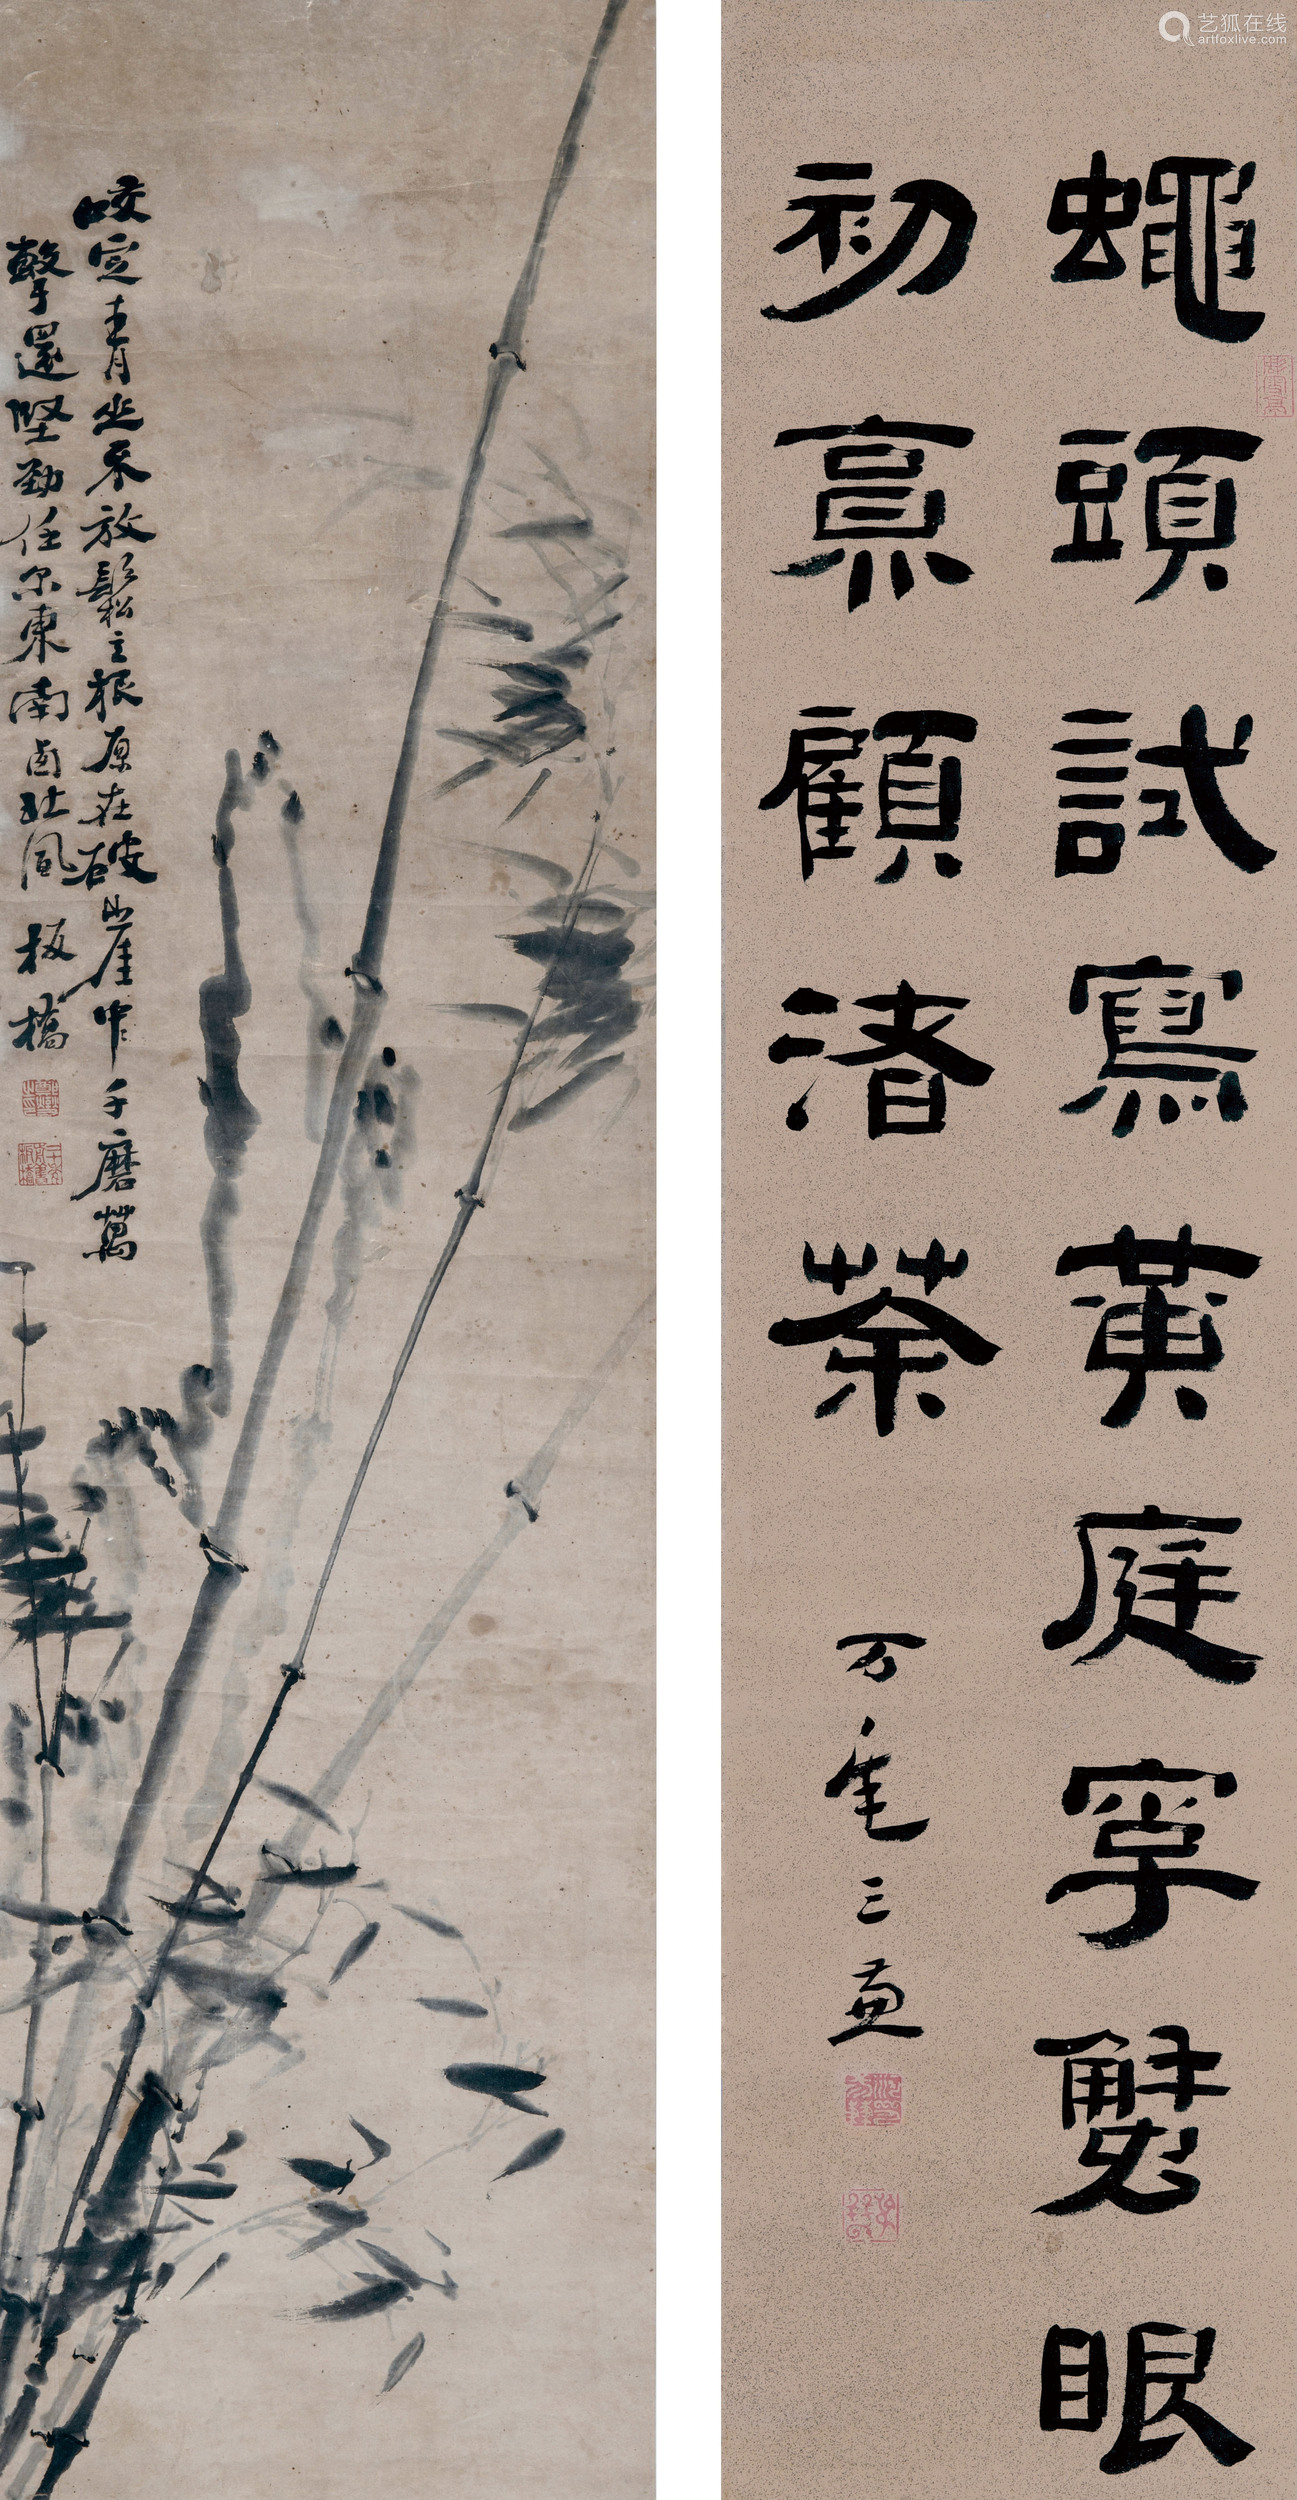 艺狐在线
artfoxlive.com
蠅頭試寫黃庭字蟹眼
初烹顧渚茶
咬定青山不放鬆立根原在破山崖中千磨萬
擊還堅勁任尔東南西北風 板橋